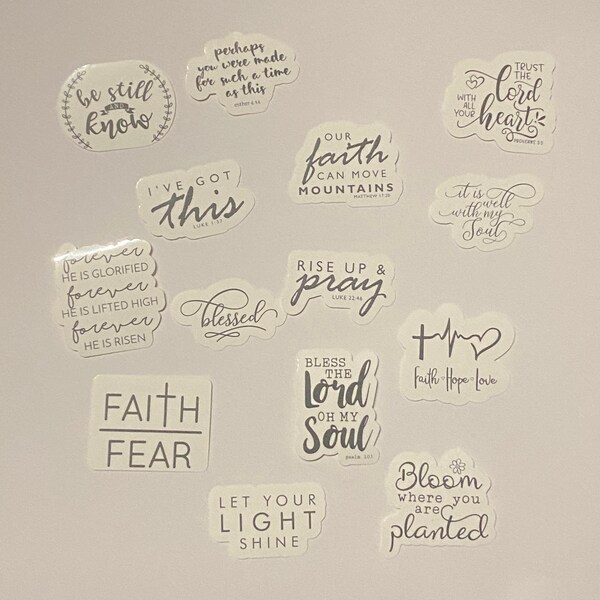 be still
AND
know
perhaps
you were made
for such a time
as this
esther 4:14
TRUST
THE
Lord
WITH
ALL
YOUR
heart
PROVERBS 3:5
OUR
faith
CAN MOVE
MOUNTAINS
MATTHEW 17:20
I'VE GOT
this
LUKE 1:37
it is
well
with my
Soul
forever
HE IS GLORIFIED
forever
HE IS LIFTED HIGH
forever
HE IS RISEN
blessed
RISE UP &
pray
LUKE 22:46
Faith Hope Love
FAITH
FEAR
BLESS
THE
Lord
OH MY
Soul
psalm 103
LET YOUR
LIGHT
SHINE
Bloom
where you
are
planted